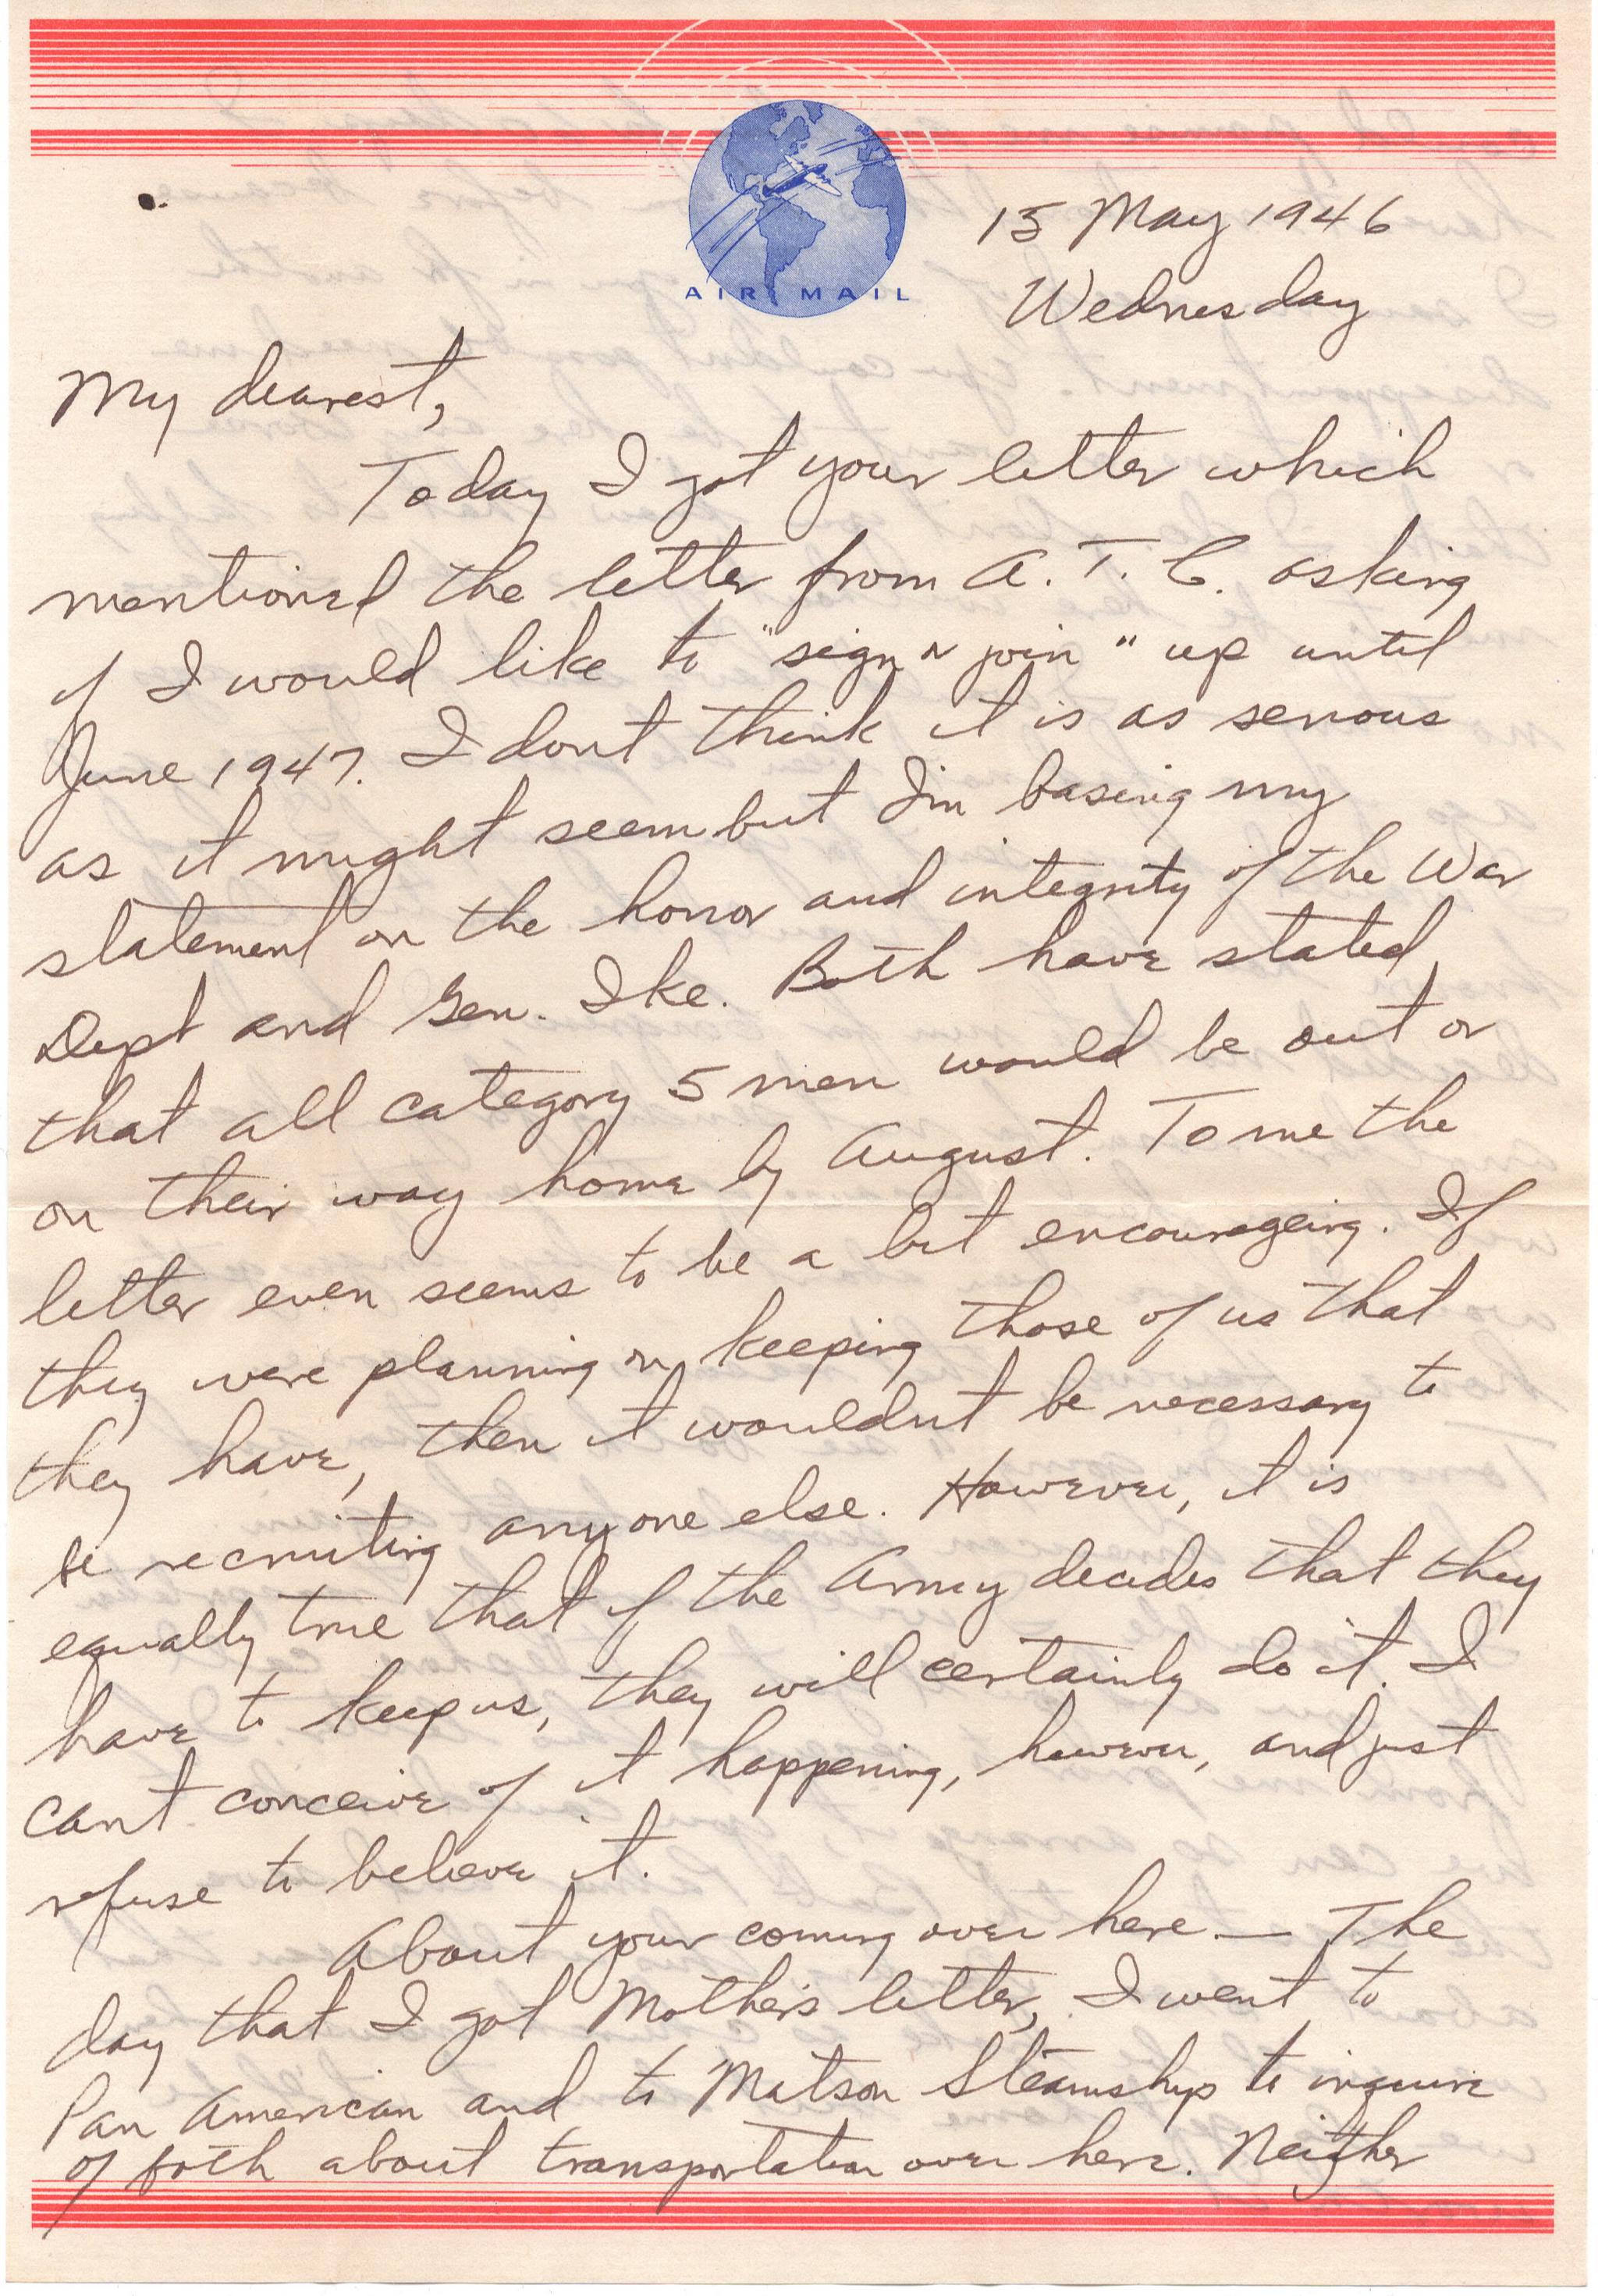 AIR MAIL
15 May 1946
Wednesday
My dearest,
Today I got your letter which
mentioned the letter from A. T. C. asking
if I would like to "sign n join" up until
June 1947. I dont think it is as serious
as it might seem but I'm basing my
statement on the honor and integrity of the War
Dept and Gen. Ike. Both have stated
that all category 5 men would be out or
on their way home by August. To me the
letter even seems to be a bit encourageing. If
they were planning on keeping those of us that
they have, then it wouldn't be necessary to
be recruiting anyone else. However, it is
equally true that if the Army decides that they
have to keep us, they will certainly do it. I
cant conceive of it happening, however, and just
refuse to believe it.
About your coming over here — The
day that I got Mother's letter, I went to
Pan American and to Matson Steamships to inquire
of both about transportation over here. Neither